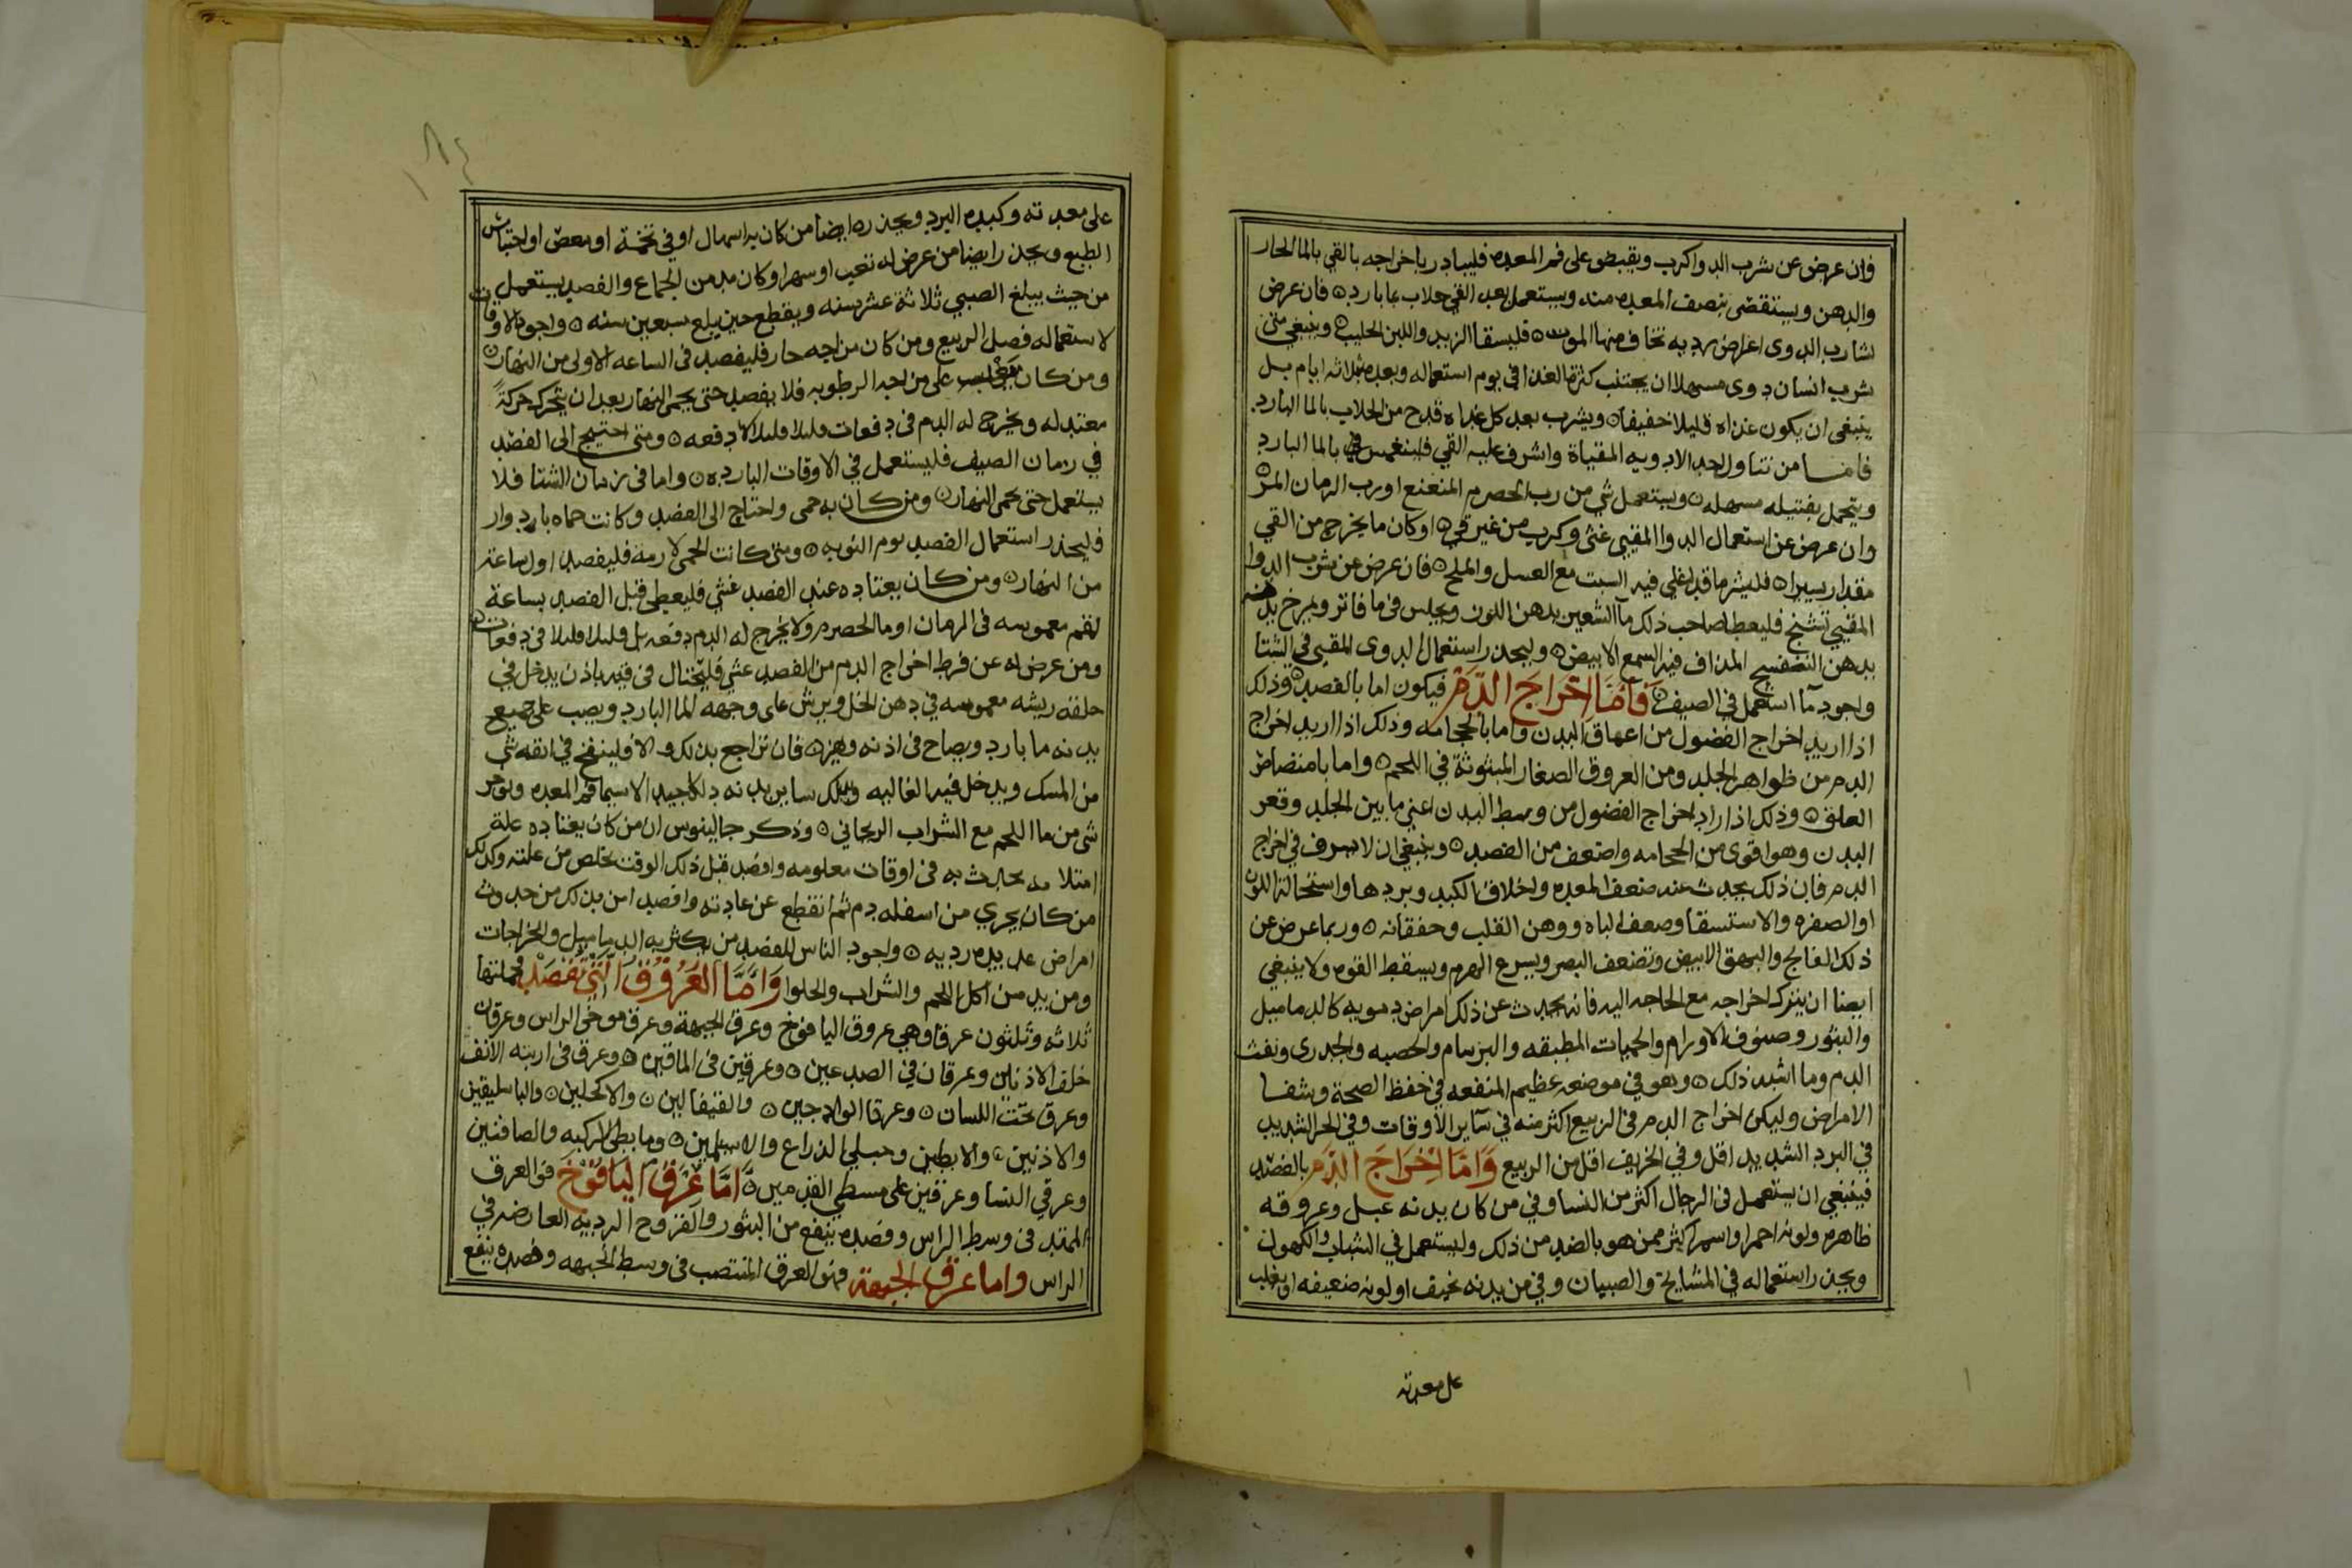 وان عرض عن شرب الدوا كرب ويقبض على فم المعده فليبادر باخراجه بالقي بالما الحار
والدهن ويستقصى بنصف المعده منه ويستعمل بعد القي جلاب بما بارد ۞ فان عرض
لشارب الدوى اعراض رديه تخاف منها الموت ۞ فليسقا الزبد واللبن الحليب ۞ وينبغي متى
شرب انسان دوى مسهلا ان يجتنب كثرة الغذا في يوم استعماله وبعده بثلاثه ايام بل
ينبغى ان يكون غذاه قليلا خفيفا ۞ ويشرب بعد كل غذاه قدح من الجلاب بالما البارد
فاما من تناول احد الادويه المقياة واشرف عليه القي فلينغمس في بالما البارد
ويتحمل بفتيله مسهله ۞ ويستعمل شي من رب الحصرم المنعنع او رب الرمان المز ۞
وان عرض عن استعمال الدوا المقيي غثى وكرب من غير قي ۞ او كان ما يخرج من القي
مقدار يسيرا ۞ فليشرما قد اغلي فيه السبت مع العسل والملح ۞ فان عرض عن شرب الدوا
المقيي تشنج فليعط صاحب ذلك مآ الشعير بدهن اللوز ويجلس في ما فاتر ويمرخ بدنه
بدهن البنفسج المداف فيه الشمع الابيض ۞ وليحذر استعمال الدوى المقيي في الشتا
واجود مآ استعمل في الصيف ۞ فَاَمّا اِخرَاجَ الدَّم فيكون اما بالفصد ۞ وذلك
اذا اريد اخراج الفضول من اعماق البدن واما بالحجامه وذلك اذا اريد اخراج
الدم من ظواهر الجلد ومن العروق الصغار المبثوثة في اللحم ۞ واما بامتصاص
العلق ۞ وذلك اذا اراد اخراج الفضول من وسط البدن اعنى ما بين الجلد وقعر
البدن وهو اقوى من الحجامه واضعف من الفصد ۞ وينبغي ان لا يسرف في اخراج
الدم فان ذلك يحدث عنه ضعف المعده واخلاف الكبد وبردها واستحالة اللون
او الصفره والاستسقا وضعف الباه ووهن القلب وخفقانه ۞ وربما عرض عن
ذلك الفالج والبهق الابيض وتضعف البصر ويسرع الهرم ويسقط القوه ولا ينبغي
ايضا ان يترك اخراجه مع الحاجه اليه فانه يحدث عن ذلك امراض دمويه كالدماميل
والبثور وصنوف الاورام والحميات المطبقه والبرسام والحصبه والجدرى ونفث
الدم وما اشبه ذلك ۞ وهو في موضعه عظيم المنفعه في حفظ الصحة وشفا
الامراض وليكن اخراج الدم فى الربيع اكثر منه في سآير الاوقات وفي الحر الشديد
في البرد الشديد اقل وفي الخريف اقل من الربيع وَاَمّا اِخْرَاجَ الدَّم بالفصد
فينبغي ان يستعمل فى الرجال اكثر من النسا وفي من كان بدنه عبل وعروقه
ظاهره ولونه احمر او اسمر اكثر ممن هو بالضد من ذلك وليستعمل في الشباب والكهول
ويحذر استعماله في المشايخ والصبيان وفي من بدنه نحيف او لونه ضعيفه او يغلب
على معدته
على معدته وكبده البرد ويحذره ايضا من كان به اسهال او في تخمة او مغص او احتباس
الطبع ويحذر ايضا من عرض له تعب او سهر او كان مدمن الجماع والفصد يستعمل
من حيث يبلغ الصبي ثلاثة عشر سنه ويقطع حين يبلع سبعين سنه ۞ واجود الاوقات
لاستعماله فصل الربيع ومن كان مزاجه حار فليفصد فى الساعه الاولى من النهار ۞
ومن كان يغلب على مزاجه الرطوبه فلا يفصد حتى يحمى النهار بعد ان يتحرك حركةً
معتدله ويخرج له الدم فى دفعات قليلا قليلا لا دفعه ۞ ومتى احتيج الى الفصد
في زمان الصيف فليستعمل في الاوقات البارده ۞ واما فى زمان الشتا فلا
يستعمل حتى يحمى النهار ۞ ومن كان به حمى واحتاج الى الفصد وكانت حماه بادوار
فليحذر استعمال الفصد يوم النوبه ۞ ومتى كانت الحمى لازمه فليفصد اول ساعة
من النهار ۞ ومن كان يعتاده عند الفصد غشي فليعطى قبل الفصد بساعة
لقم مغموسه فى الرمان او ما الحصرم ولا يخرج له الدم دفعه بل قليلا قليلا فى دفعات
ومن عرض له عن فرط اخراج الدم من الفصد غشي فليحتال فى قيه بان يدخل في
حلقه ريشه مغموسه في دهن الخل ويرش على وجهه الما البارد ويصب على جميع
بدنه ما بارد ويصاح فى اذنه ويهز ۞ فان تراجع بذلك والا فلينفخ في انفه شي
من المسك ويدخل فيه الغاليه ويدلك ساير بدنه دلكا جيدا لاسيما فم المعده ويوجر
شى من ما اللحم مع الشراب الريحاني ۞ وذكر جالينوس ان من كان يعتاده علة
امتلاييه تحدث به فى اوقات معلومه وافصد قبل ذلك الوقت تخلص من علته وكذلك
من كان يجري من اسفله دم ثم انقطع عن عادته وافصد امن بذلك من حدوث
امراض عديده رديه ۞ واجود الناس للفصد من يكثر به الدماميل والخراجات
ومن يدمن اكل اللحم والشراب والحلوا وَاَمَّا العُرُوقُ الَّتِي تَفْصَدْ فجملتها
ثلاثه وثلثون عرقا وهي عروق اليافوخ وعرق الجبهة وعرق موخر الراس وعرقان
خلف الاذنين وعرقان في الصدغين ۞ وعرقين فى الماقين ۞ وعرق فى ارنبه الانف
وعرق تحت اللسان ۞ وعرقا الوادجين ۞ والقيفالين ۞ والاكحلين ۞ والباسليقين
والاذنين ۞ والابطين وحبلي الذراع والاسيلمين ۞ وما بطن الركبه والصافنين
وعرقي النسا وعرقين على مسطي القدمين ۞ اَمَّا عَرقُ اليَافُوْخَ فهو العرق
الممتد فى وسط الراس وفصده ينفع من البثور والقروح الرديه العارضه في
الراس واما عرق الجبهة فهو العرق المنتصب فى وسط الجبهه وفصده ينفع